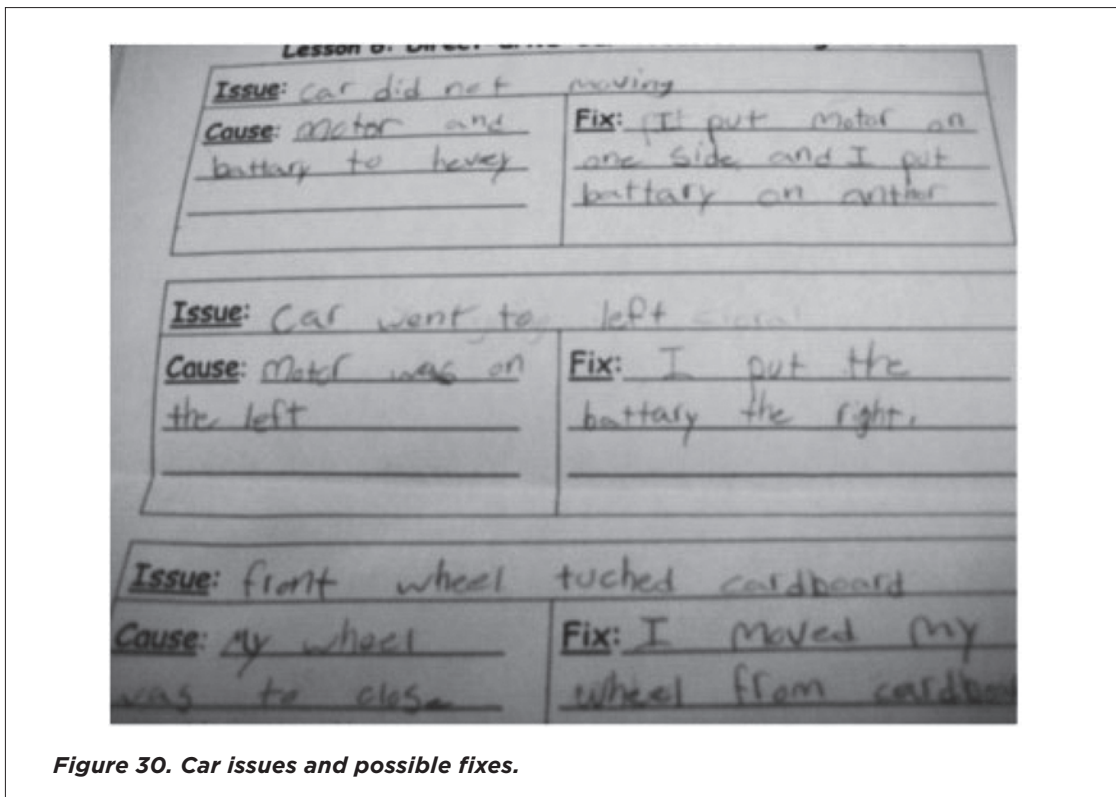 Lesson 6: Direct
Issue: car did not moving
Cause: motor and
battary to hevey
Fix: I put motor on
one side and I put
battary on anther
Issue: Car went to left
Cause: Motor was on
the left
Fix: I put the
battary the right.
Issue: front wheel tuched cardboard
Cause: My wheel
was to close
Fix: I moved my
wheel from cardboa
Figure 30. Car issues and possible fixes.